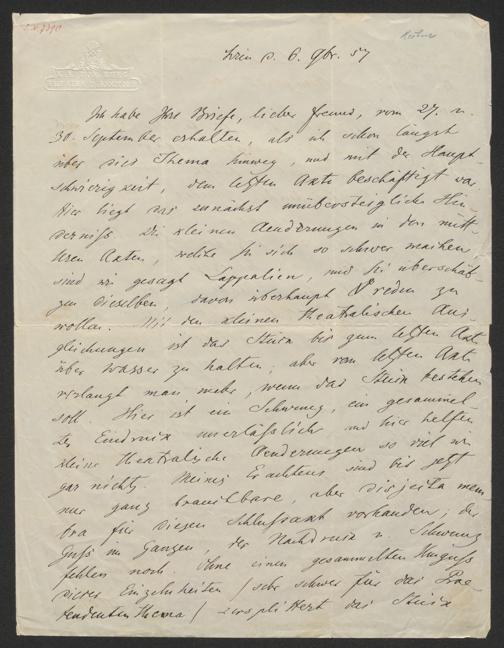 d. 6. 9br. 57
Ich habe Ihre Briefe, lieber Freund, vom 27. u.
30. September erhalten, als ich schon längst
über dies Thema hinweg, und mit der Haupt-
schwierigkeit, dem letzten Akte beschäftigt war.
Hier liegt das zunächst unübersteigliche Hin-
derniß. Die kleinen Aenderungen in den mitt-
leren Akten, welche Sie sich so schwer machen,
sind wie gesagt Lappalien, und Sie überschät-
zen dieselben davon überhaupt reden zu
wollen. Mit den kleinen theatralischen Aus-
gleichungen ist das Stück bis zum letzten Akte
über Wasser zu halten, aber vom letzten Akte
verlangt man mehr, wenn das Stück bestehen
soll. Hier ist ein Schwung, ein gesammel-
ter Eindruck unerläßlich und hier helfen
kleine theatralische Aenderungen so viel wie
gar nichts. Meines Erachtens sind bis jetzt
nur ganz brauchbare, aber disjecta mem
bra für diesen Schlußakt vorhanden; der
Guß im Ganzen, der Nachdruck u. Schwung
fehlen noch. Ohne einen gesammelten
dieser Einzelnheiten / sehr schwer für das Prä-
tendententhema / zersplittert das Stück